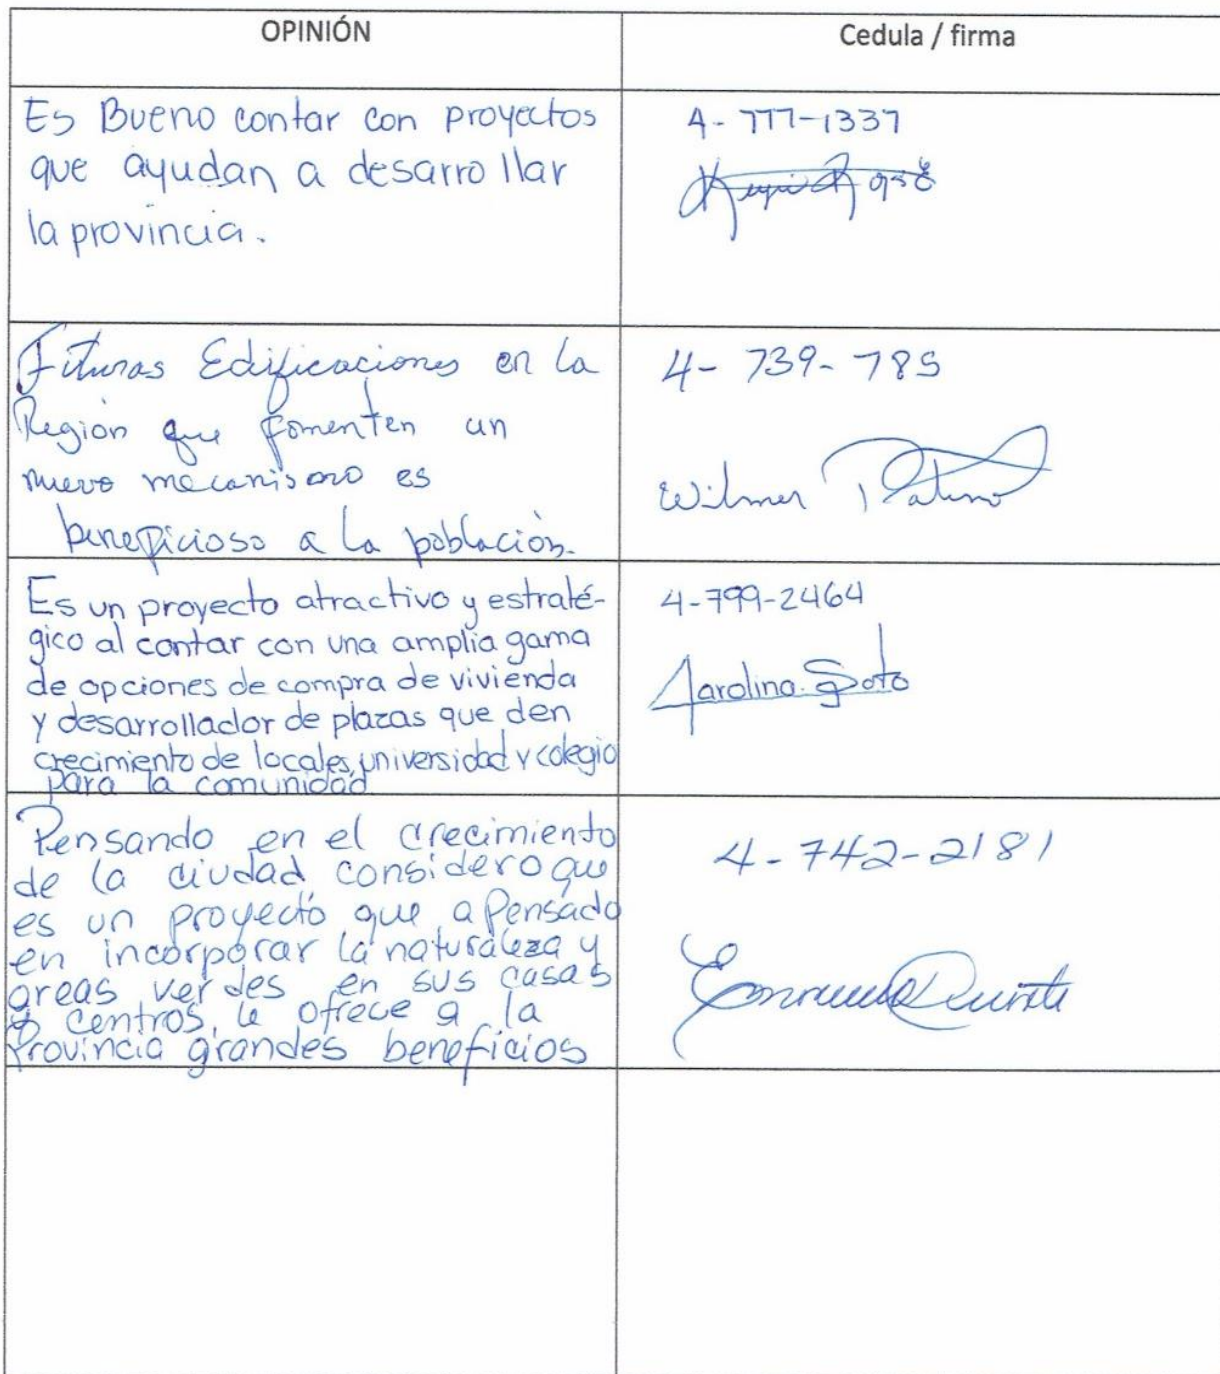 OPINIÓN
Cedula / firma
Es Bueno contar con proyectos
que ayudan a desarrollar
la provincia.
4-777-1337
Fituras Edificaciones en la
Región que fomenten un
nuevo mecanismo es
beneficioso a la población.
4-739-785
Wilmer Patino
Es un proyecto atractivo y estraté-
gico al contar con una amplia gama
de opciones de compra de vivienda
y desarrollador de plazas que den
crecimiento de locales, universidad y colegio
para la comunidad
4-799-2464
Karolina Soto
Pensando en el crecimiento
de la ciudad, considero que
es un proyecto que a Pensado
en incorporar la naturaleza y
areas verdes en sus casas
y centros, le ofrece a la
Provincia grandes beneficios
4-742-2181